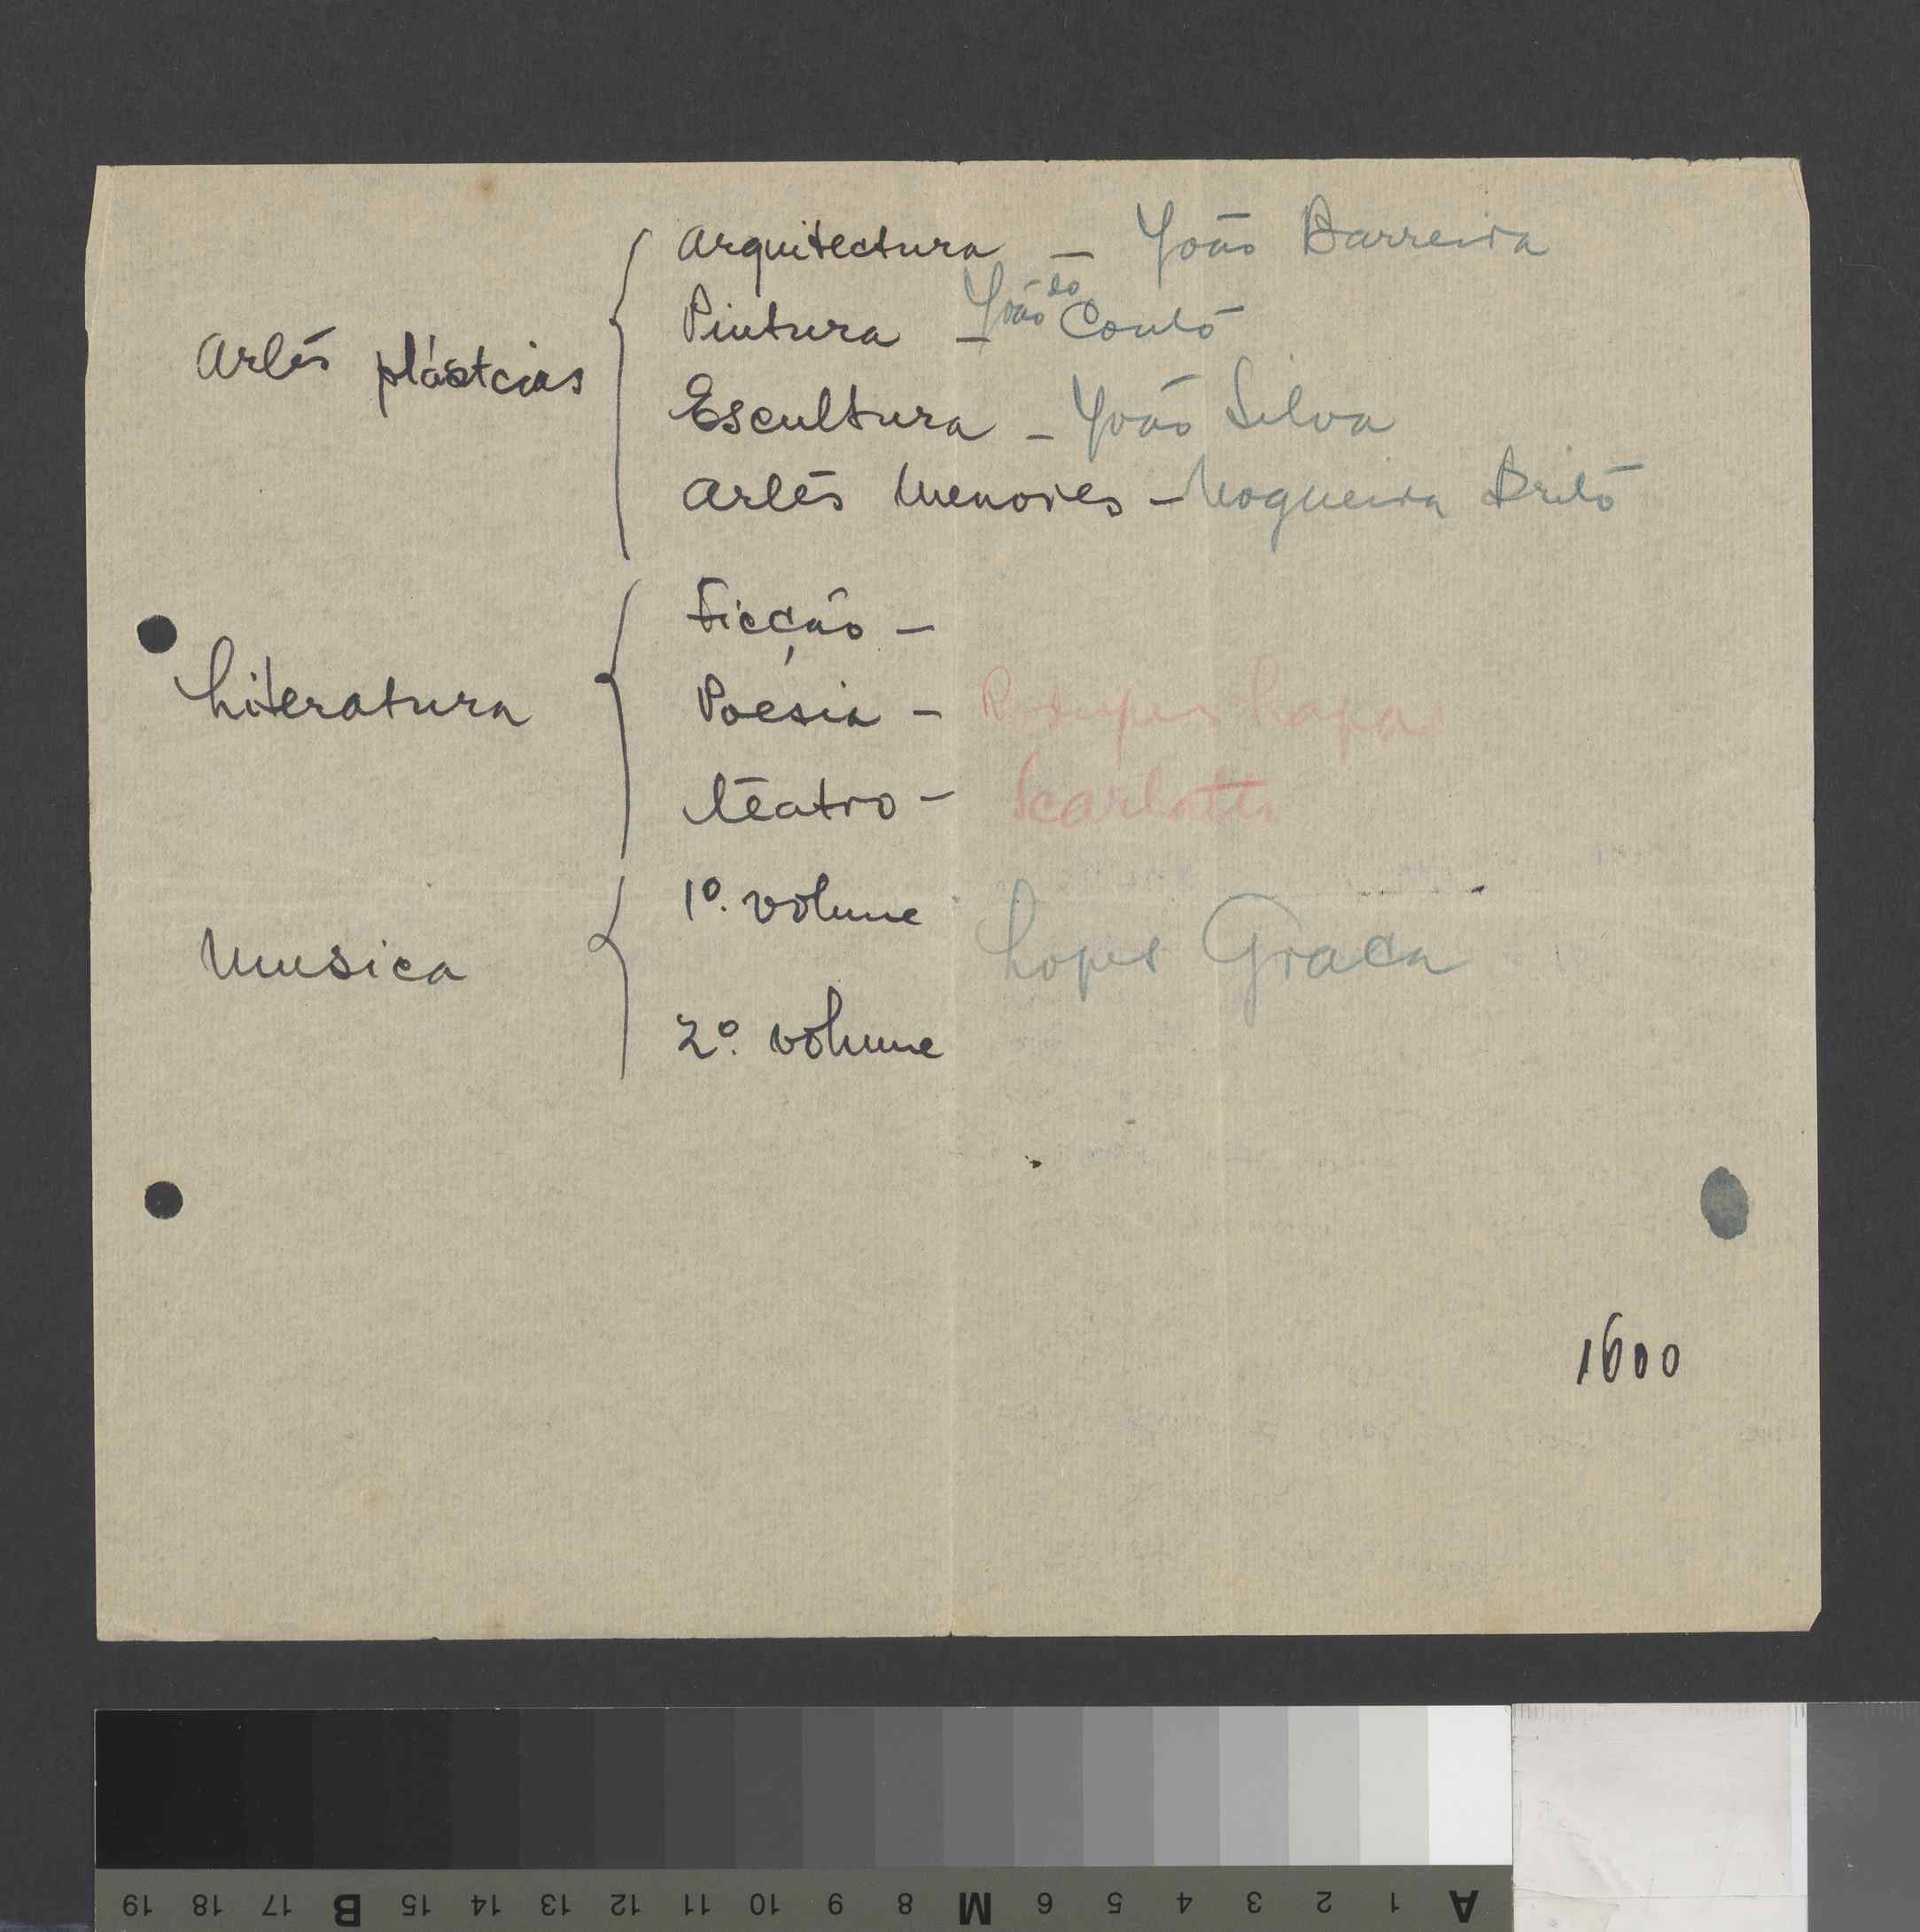 Arquitectura – João Barreira
Pintura – João do Couto
Artes plástcias
Escultura – João Silva
Artes Menores – Nogueira Brito
Ficção –
Literatura
Poesia – Rodrigues Lapa
Teatro – Scarlatti
1º. volume
Musica
Lopes Graça
2º. volume
1600
19 18 17 B 15 14 13 12 11 10 9 8 M 6 5 4 3 2 1 A